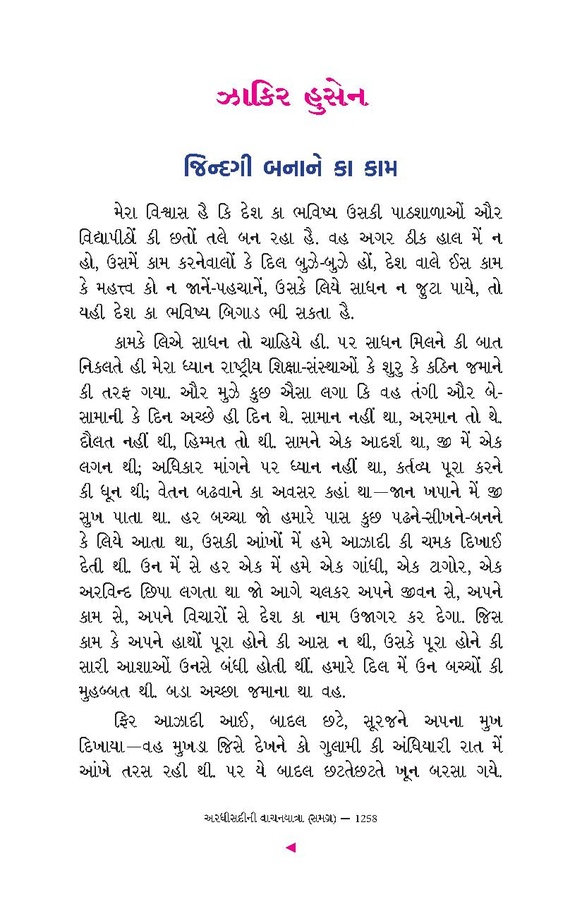 ઝાકિર હુસેન
જિન્દગી બનાને કા કામ
મેરા વિશ્વાસ હૈ કિ દેશ કા ભવિષ્ય ઉસકી પાઠશાળાઓં ઔર
વિદ્યાપીઠોં કી છતોં તલે બન રહા હૈ. વહ અગર ઠીક હાલ મેં ન
હો, ઉસમેં કામ કરનેવાલોં કે દિલ બુઝે-બુઝે હોં, દેશ વાલે ઈસ કામ
કે મહત્ત્વ કો ન જાનેં-પહચાનેં, ઉસકે લિયે સાધન ન જુટા પાયે, તો
યહી દેશ કા ભવિષ્ય બિગાડ ભી સકતા હૈ.
કામકે લિએ સાધન તો ચાહિયે હી. પર સાધન મિલને કી બાત
નિકલતે હી મેરા ધ્યાન રાષ્ટ્રીય શિક્ષા-સંસ્થાઓં કે શુરુ કે કઠિન જમાને
કી તરફ ગયા. ઔર મુઝે કુછ ઐસા લગા કિ વહ તંગી ઔર બે-
સામાની કે દિન અચ્છે હી દિન થે. સામાન નહીં થા, અરમાન તો થે.
દૌલત નહીં થી, હિમ્મત તો થી. સામને એક આદર્શ થા, જી મેં એક
લગન થી; અધિકાર માંગને પર ધ્યાન નહીં થા, કર્તવ્ય પૂરા કરને
કી ધૂન થી; વેતન બઢવાને કા અવસર કહાં થા—જાન ખપાને મેં જી
સુખ પાતા થા. હર બચ્ચા જો હમારે પાસ કુછ પઢને-સીખને-બનને
કે લિયે આતા થા, ઉસકી આંખોં મેં હમે આઝાદી કી ચમક દિખાઈ
દેતી થી. ઉન મેં સે હર એક મેં હમે એક ગાંધી, એક ટાગોર, એક
અરવિન્દ છિપા લગતા થા જો આગે ચલકર અપને જીવન સે, અપને
કામ સે, અપને વિચારોં સે દેશ કા નામ ઉજાગર કર દેગા. જિસ
કામ કે અપને હાથોં પૂરા હોને કી આસ ન થી, ઉસકે પૂરા હોને કી
સારી આશાઓં ઉનસે બંધી હોતી થીં. હમારે દિલ મેં ઉન બચ્ચોં કી
મુહબ્બત થી. બડા અચ્છા જમાના થા વહ.
ફિર આઝાદી આઈ, બાદલ છટે, સૂરજને અપના મુખ
દિખાયા—વહ મુખડા જિસે દેખને કો ગુલામી કી અંધિયારી રાત મેં
આંખે તરસ રહી થી. પર યે બાદલ છટતેછટતે ખૂન બરસા ગયે.
અરધીસદીની વાચનયાત્રા (સમગ્ર) — 1258